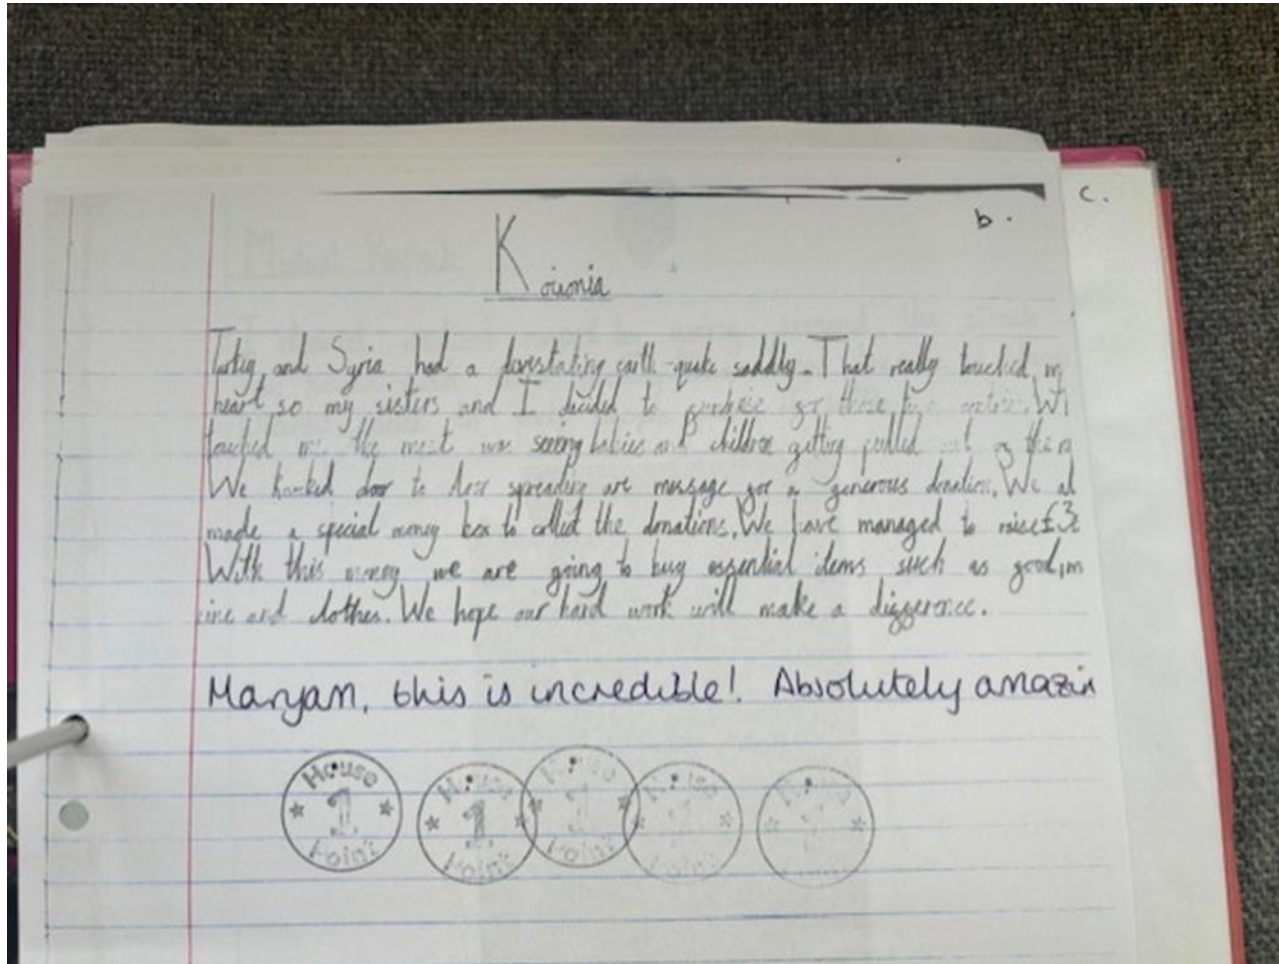 b.
c.
Koinonia
and Syria had a earth-quake saddly. That really touched my
heart so my sisters and I decided to for these
touched me the most was seeing babies and children getting pulled out of
We door to door spreading are message for a generous donation. We al
made a special money box to collect the donations. We have managed to raise £3
With this money we are going to buy essential items such as food, m
ine and clothes. We hope our hard work will make a difference.
Maryam, this is incredible! Absolutely amazin
House 1 Point
House 1 Point
House 1 Point
House 1 Point
House 1 Point